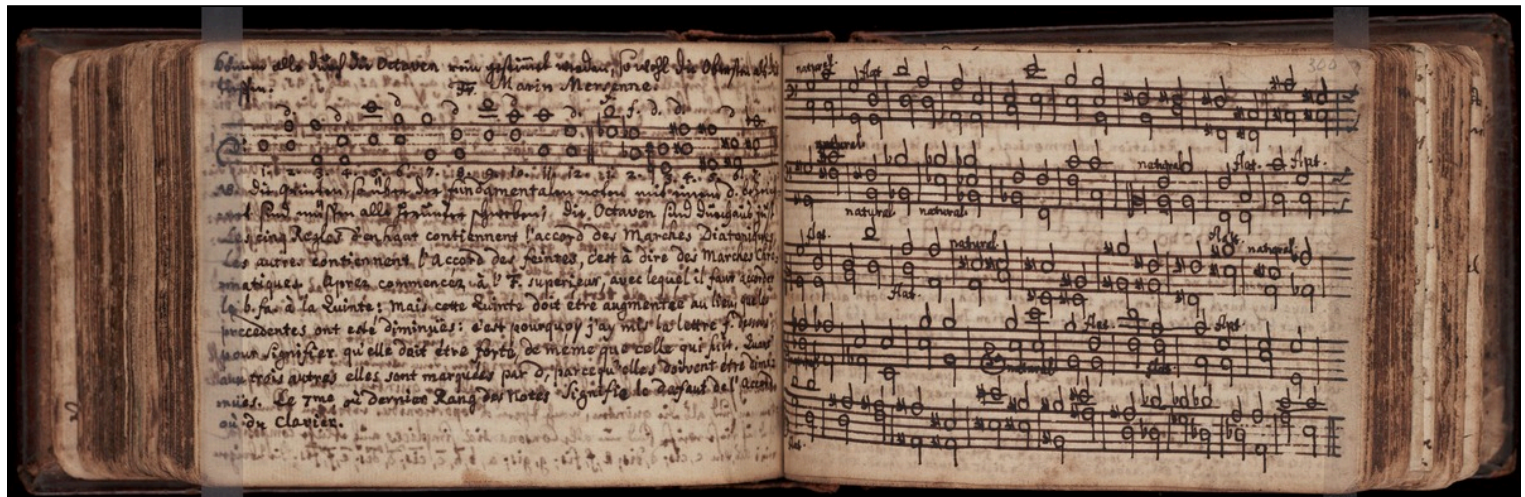 alle durch die Octaven rein gestimmet werden, so wohl die Obersten als die
tieffen.
Marin Mersenne.
d. d. d. d. d. f. d. d.
1. 2. 3. 4. 5. 6. 7. 8. 9. 10. 11. 12. 1. 2. 3. 4. 5. 6. 7.
die Quinten, so über der fundamentalen noten mit einem d.
sind müssen alle schweben; die Octaven sind durchaus just.
Les cinq Regles d'enhaut contiennent l'accord des Marches Diatoniques,
Les autres contiennent l'Accord des feintes, c'est à dire des Marches Chro-
matiques. Aprez commencéz à l'F. superieur, avec lequel il faut accorder
le b. fa. à la Quinte: mais cette Quinte doit être augmentée au lieu, que les
precedentes ont esté diminuées: c'est pourquoy j'ay mis la lettre f. dessous
pour signifier qu'elle doit être forte, de même que celle qui suit. Quant
aux trois autres elles sont marquées par d, parcequ'elles doivent être dimi-
nuées. Le 7me ou dernier Rang des Notes signifie le defaut de l'Accord
ou du Clavier.
300
natural. flat.
natural. natural. flat. flat.
natural. natural.
flat. natural. flat. natural.
flat.
flat. flat.
natural flat.
flat.